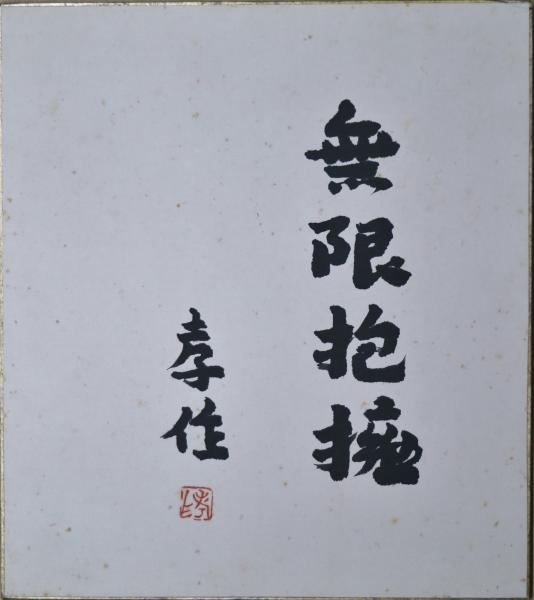 無限抱擁
孝作